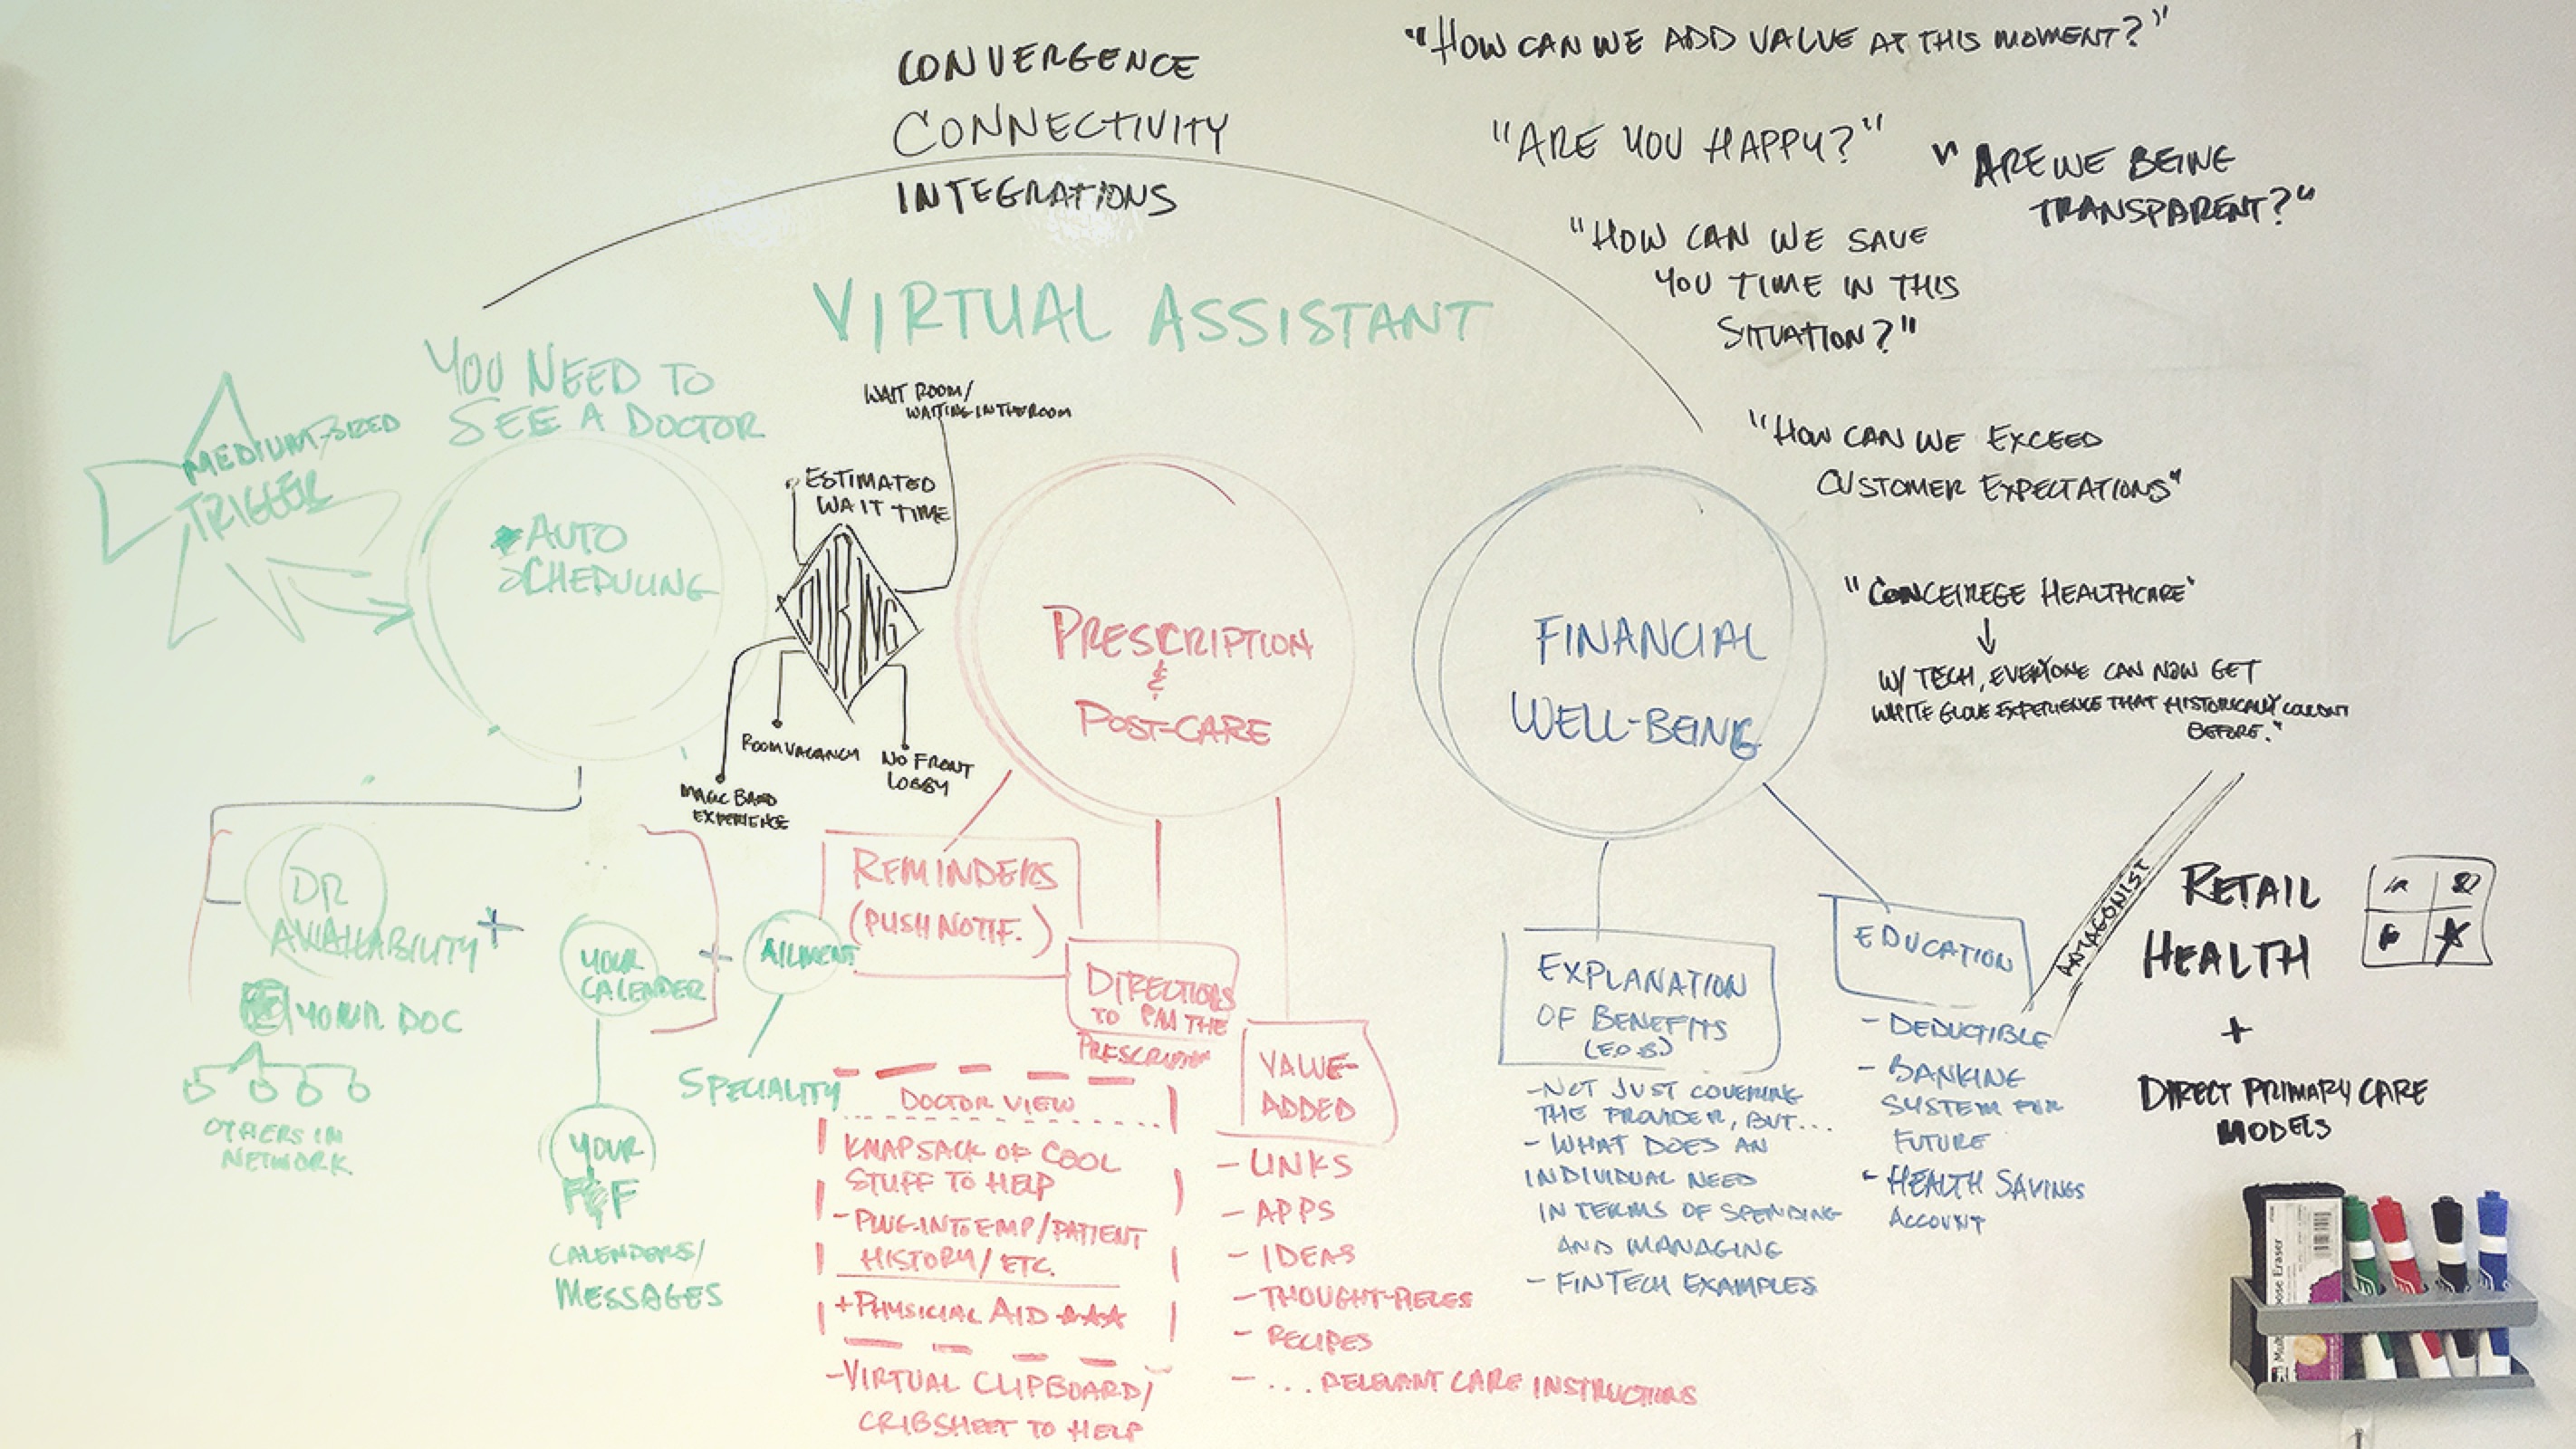 CONVERGENCE
CONNECTIVITY
INTEGRATIONS
"HOW CAN WE ADD VALUE AT THIS MOMENT?"
"ARE YOU HAPPY?"
"ARE WE BEING
TRANSPARENT?"
"HOW CAN WE SAVE
YOU TIME IN THIS
SITUATION?"
"HOW CAN WE EXCEED
CUSTOMER EXPECTATIONS"
"CONCEIREGE HEALTHCARE"
↓
W/ TECH, EVERYONE CAN NOW GET
WHITE GLOVE EXPERIENCE THAT HISTORICALLY COULDN'T
BEFORE."
VIRTUAL ASSISTANT
YOU NEED TO
SEE A DOCTOR
MEDIUM-SIZED
TRIGGER
AUTO
SCHEDULING
WAIT ROOM/
WAITING IN THE ROOM
ESTIMATED
WAIT TIME
DURING
ROOM VACANCY
NO FRONT
LOBBY
MAGIC BAND
EXPERIENCE
DR
AVAILABILITY
+
YOUR
CALENDER
+
AILMENT
SPECIALITY
YOUR DOC
OTHERS IN
NETWORK
YOUR
F&F
CALENDERS/
MESSAGES
PRESCRIPTION
&
POST-CARE
REMINDERS
(PUSH NOTIF.)
DIRECTIONS
TO THE
PRESCRIPTION
VALUE-
ADDED
- LINKS
- APPS
- IDEAS
- THOUGHT-PIECES
- RECIPES
- ... RELEVANT CARE INSTRUCTIONS
DOCTOR VIEW
KNAPSACK OF COOL
STUFF TO HELP
- PLUG-INTO EMP/PATIENT
HISTORY/ETC.
+ PHYSICIAL AID ★★★
- VIRTUAL CLIPBOARD/
CRIBSHEET TO HELP
FINANCIAL
WELL-BEING
EXPLANATION
OF BENEFITS
(E.O.B)
- NOT JUST COVERING
THE PROVIDER, BUT...
- WHAT DOES AN
INDIVIDUAL NEED
IN TERMS OF SPENDING
AND MANAGING
- FINTECH EXAMPLES
EDUCATION
- DEDUCTIBLE
- BANKING
SYSTEM FOR
FUTURE
- HEALTH SAVINGS
ACCOUNT
ANTAGONIST
RETAIL
HEALTH
+
DIRECT PRIMARY CARE
MODELS